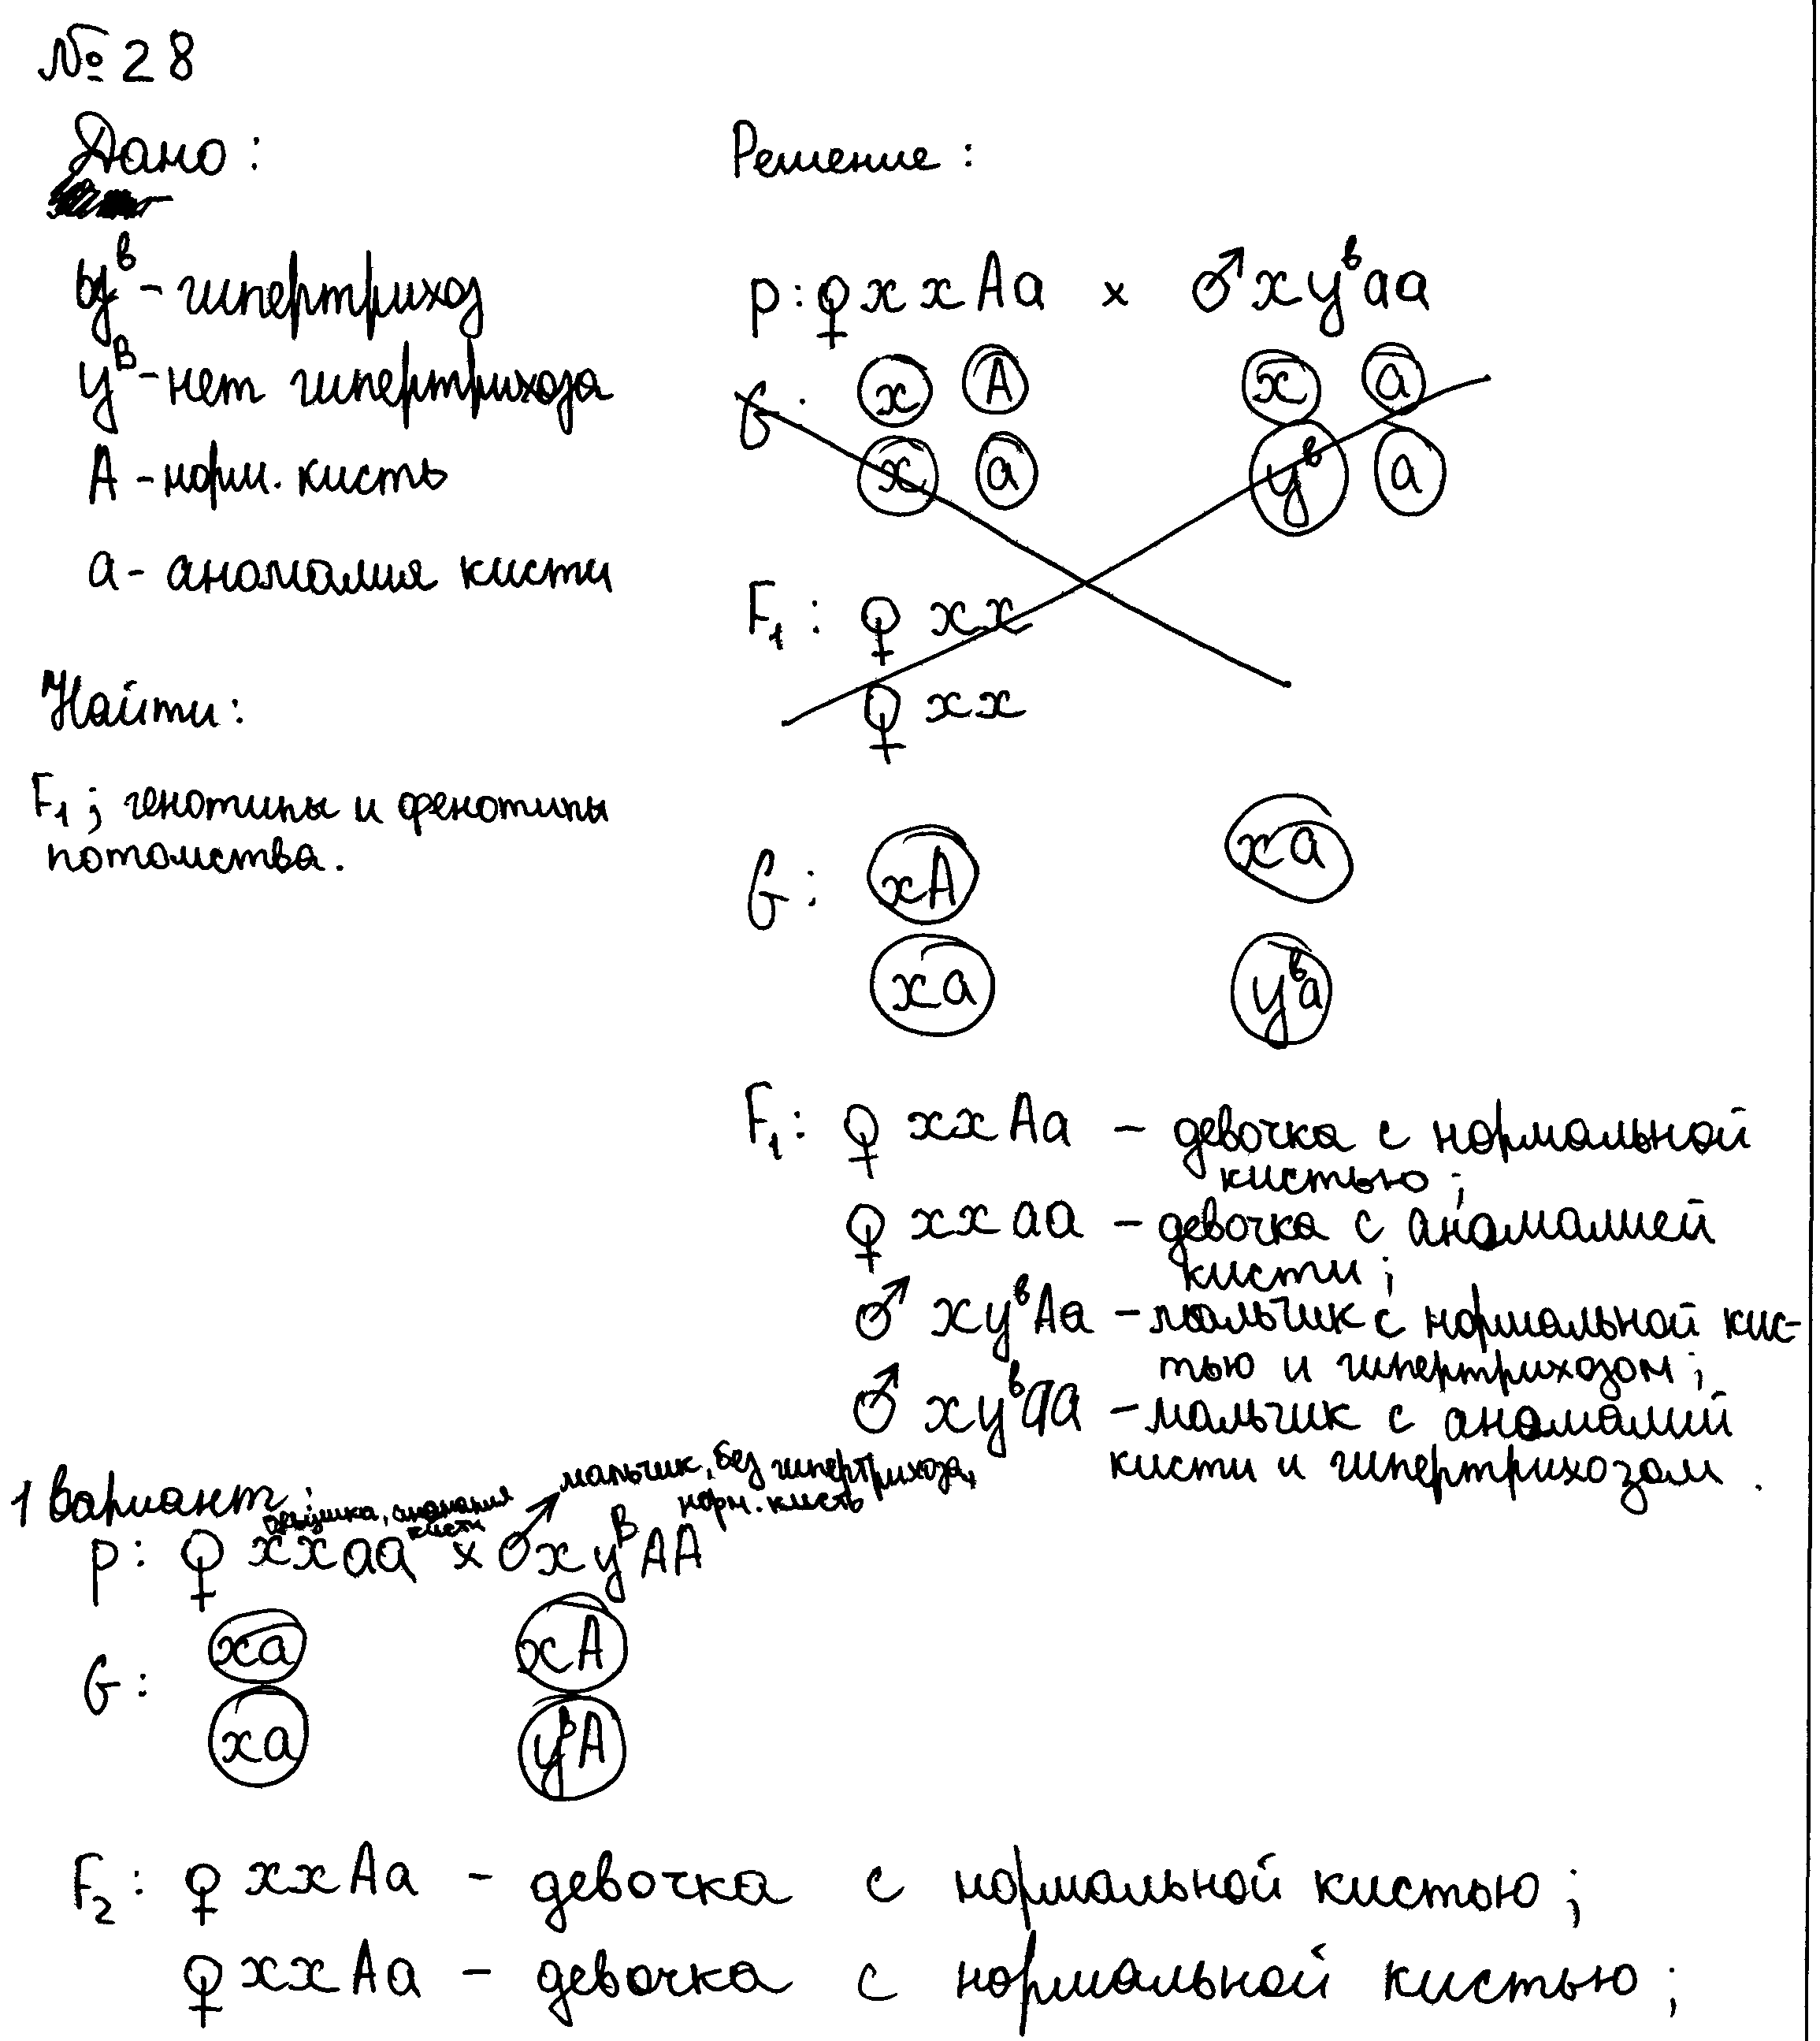 № 28
Дано:
yᵇ - гипертрихоз
yᴮ - нет гипертрихоза
A - норм. кисть
a - аномалия кисти
Найти:
F₁; генотипы и фенотипы
потомства.
Решение:
P: ♀ xxAa × ♂ xyᵇaa
G: x A x a
x a yᵇ a
F₁: ♀ xx
♀ xx
G: xA xa
xa yᵇa
F₁: ♀ xxAa - девочка с нормальной
кистью;
♀ xxaa - девочка с аномалией
кисти;
♂ xyᵇAa - мальчик с нормальной кис-
тью и гипертрихозом;
♂ xyᵇaa - мальчик с аномалий
кисти и гипертрихозом.
1 вариант:
аномалия кисти
мальчик, без гипертрихоза,
норм. кисть
P: ♀ xxaa × ♂ xyᴮAA
G: xa xA
xa yᴮA
F₂: ♀ xxAa - девочка с нормальной кистью;
♀ xxAa - девочка с нормальной кистью;